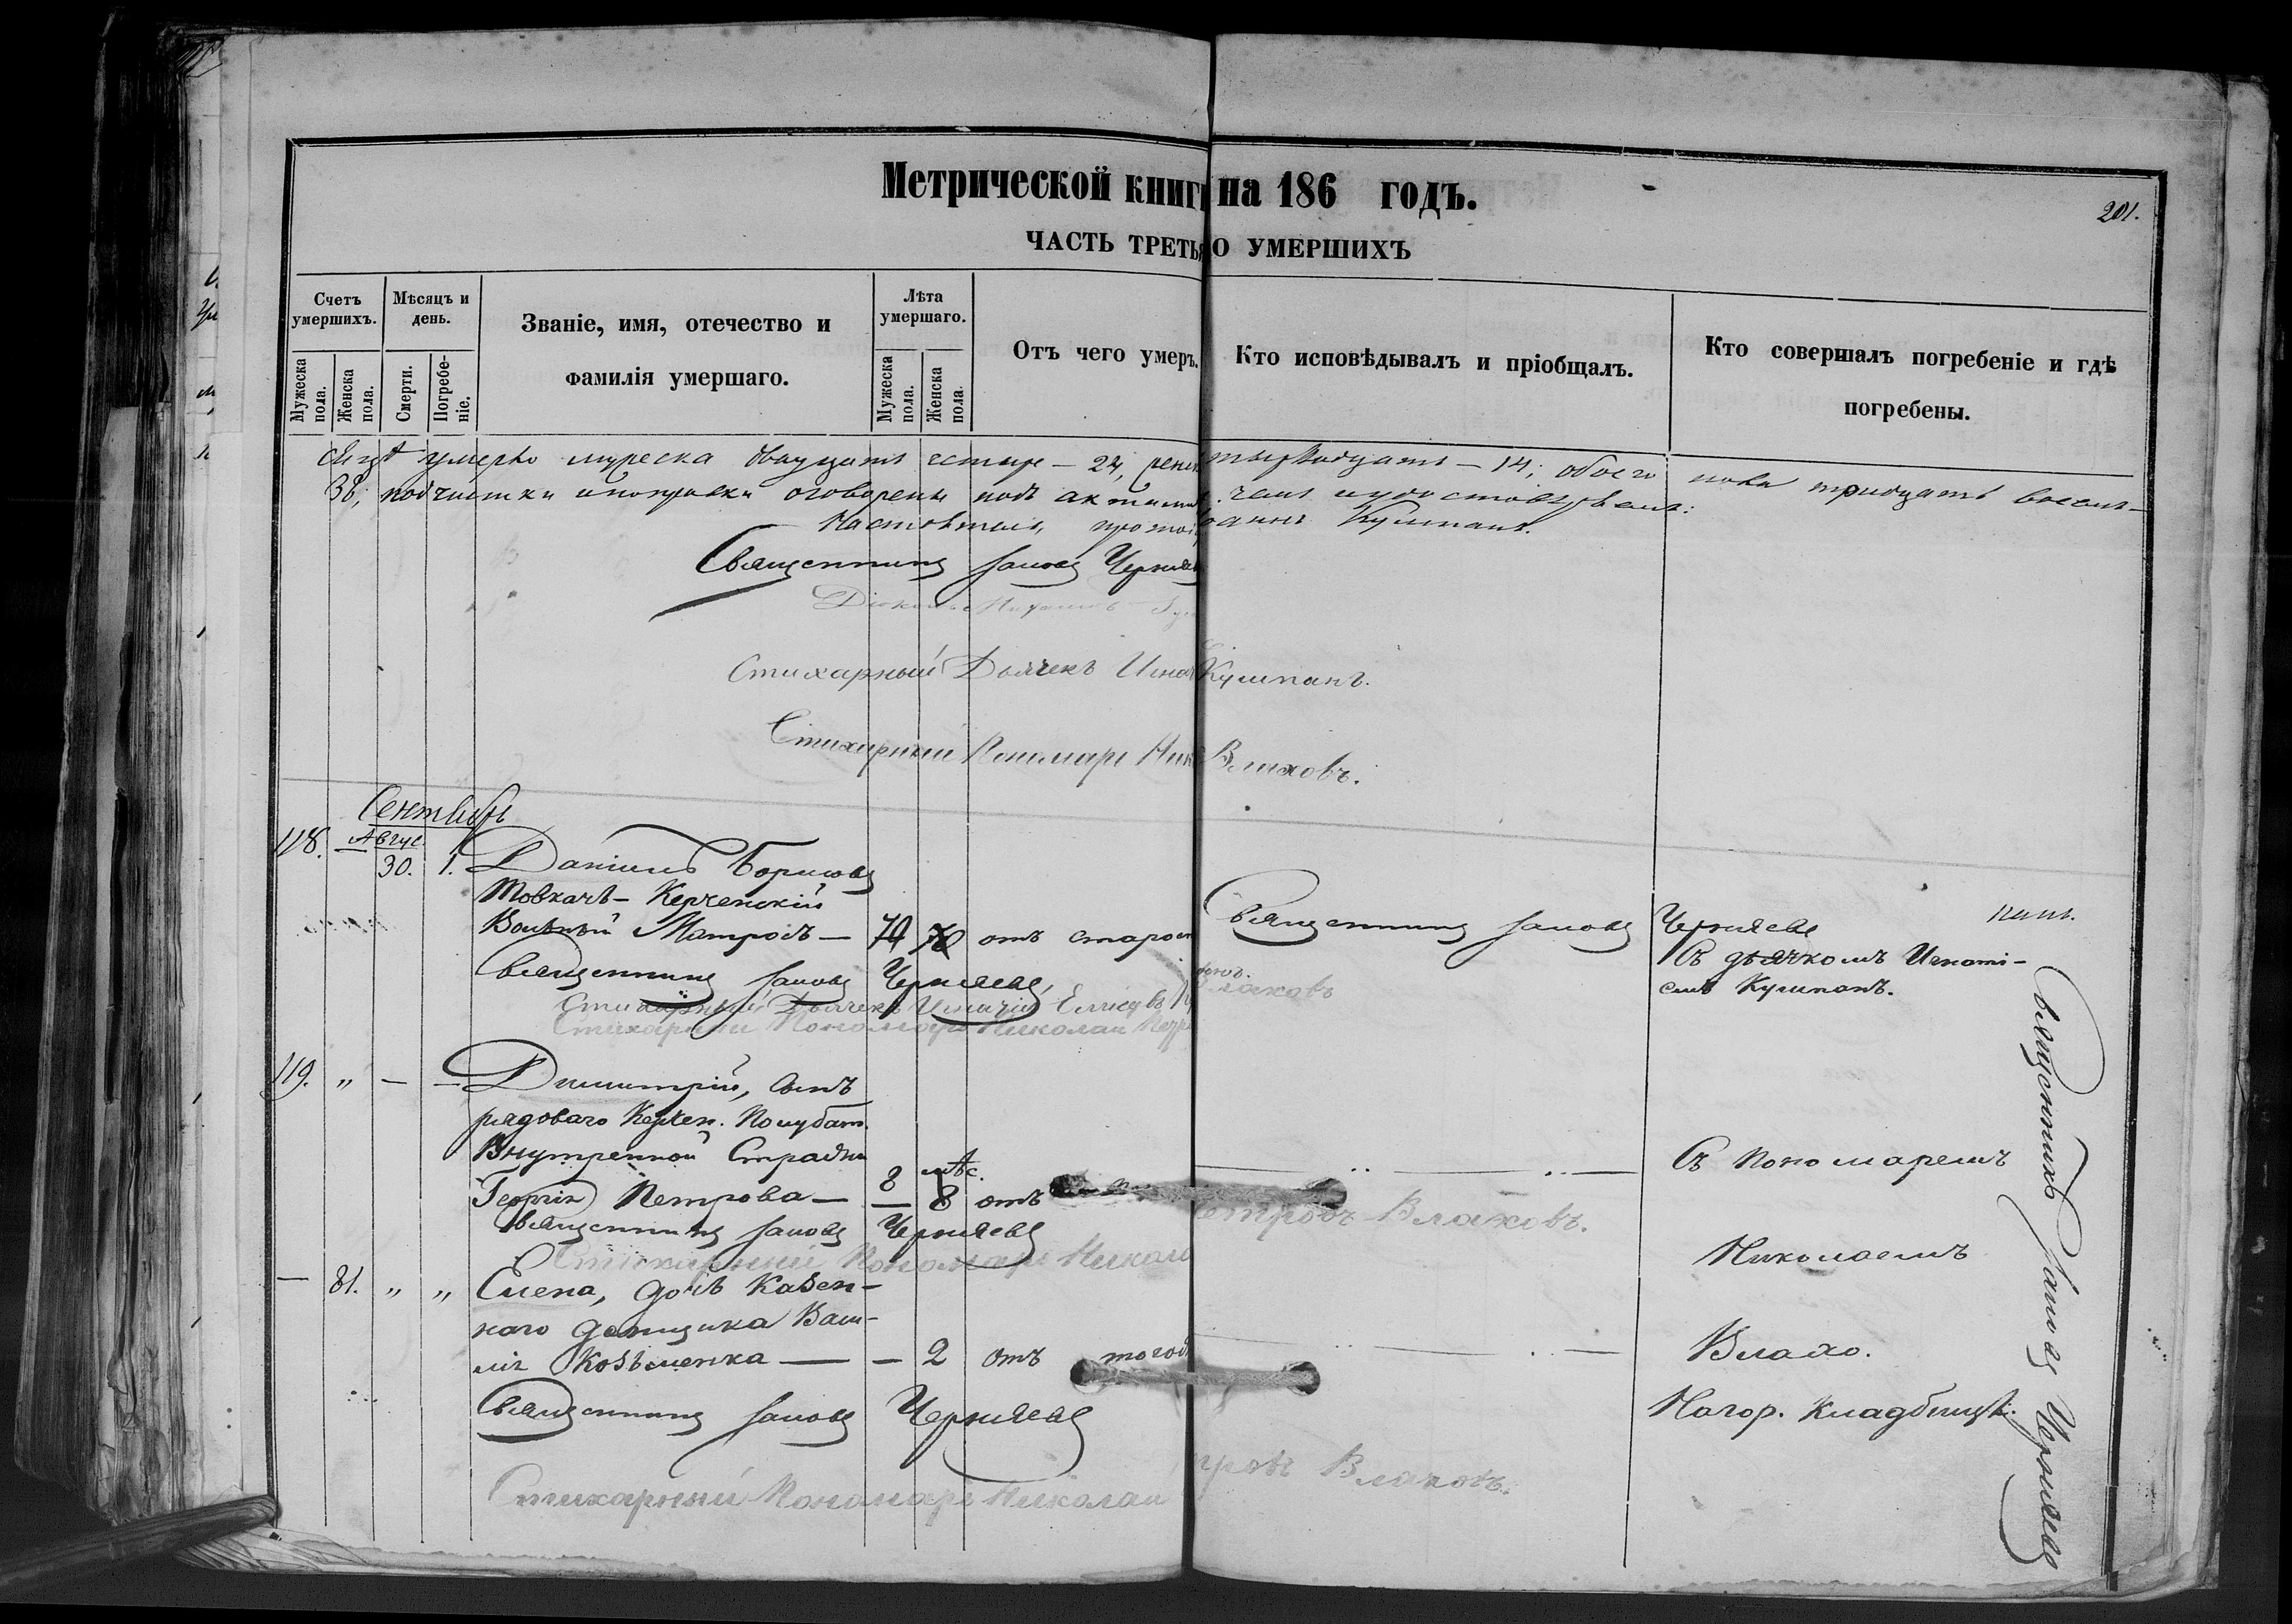 Метрической книг на 186 годъ.
201.
ЧАСТЬ ТРЕТЬЯ О УМЕРШИХЪ
Счетъ умершихъ.
Мужеска пола.
Женска пола.
Мѣсяцъ и день.
Смерти.
Погребе-ніе.
Званіе, имя, отечество и
фамилія умершаго.
Лѣта умершаго.
Мужеска пола.
Женска пола.
Отъ чего умеръ.
Кто исповѣдывалъ и пріобщалъ.
Кто совершалъ погребеніе и гдѣ
погребены.
умерло мужеска двадцать четыре – 24, – 14; обоего пола тридцать восемь –
38; подчистки и поправки оговорены подъ
Кушпанъ.
Священникъ Іаковъ Черняев
Стихарный Дьячекъ Игна Кушпанъ.
Стихарный Пономарь Ник Влаховъ.
Сентябрь
118. Авгус.
30. 1. Даніилъ Борисовъ
Товкачь – Керченскій
Вольный Матросъ – 70 70 отъ старос Священникъ Іаковъ Черняевъ
Съ дьячкомъ Игнаті-
емъ Кушпанъ.
Священникъ Іаковъ Черняевъ
Стихарный Дьячекъ Игнатій
Стихарный Пономарь Николай Влаховъ
119. „ – – Димитрій, сынъ
рядоваго Керчен. Полубат.
Внутренной Стражи
Георгія Петрова – 8 мѣс. 8 отъ
Съ Пономаремъ
Священникъ Іаковъ Черняевъ
Стихарный Пономарь Никола Петровъ Влаховъ.
Николаемъ
– 81. „ „ Елена, дочь Казен-
наго денщика Васи-
лія Козьменка – – 2 отъ тогоже
Влахо.
Священникъ Іаковъ Черняевъ
Нагор. Кладбищѣ.
Стихарный Пономарь Николай тровъ Влаховъ.
Священникъ Іаковъ Черняевъ